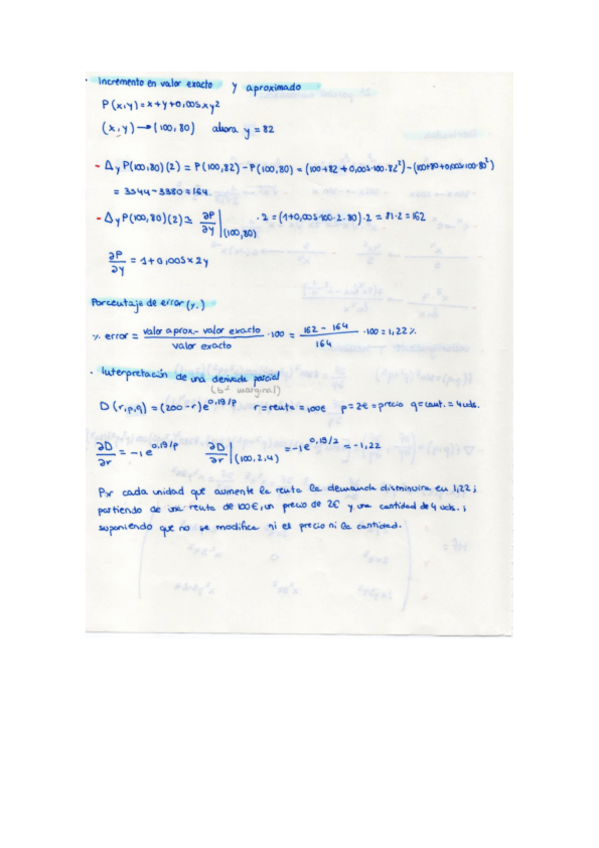 · Incremento en valor exacto y aproximado
P(x,y) = x+y+0,005xy²
(x,y) → (100,80) ahora y = 82
- Δy P(100,80)(2) = P(100,82) - P(100,80) = (100+82+0,005·100·82²) - (100+80+0,005·100·80²)
= 3544 - 3380 = 164
- Δy P(100,80)(2) ≃ ∂P/∂y |(100,80) · 2 = (1+0,005·100·2·80)·2 = 81·2 = 162
∂P/∂y = 1+0,005x2y
Porcentaje de error (%)
% error = valor aprox.- valor exacto / valor exacto ·100 = 162 - 164 / 164 ·100 = 1,22 %
· Interpretación de una derivada parcial
(bº marginal)
D(r,p,q) = (200-r)e^0,1q/p r=renta=100€ p=2€=precio q=cant.=4uds.
∂D/∂r = -1e^0,1q/p ∂D/∂r |(100,2,4) = -1e^0,1q/2 = -1,22
Por cada unidad que aumente la renta la demanda disminuira en 1,22;
partiendo de una renta de 100€, un precio de 2€ y una cantidad de 4 uds.;
suponiendo que no se modifica ni el precio ni la cantidad.